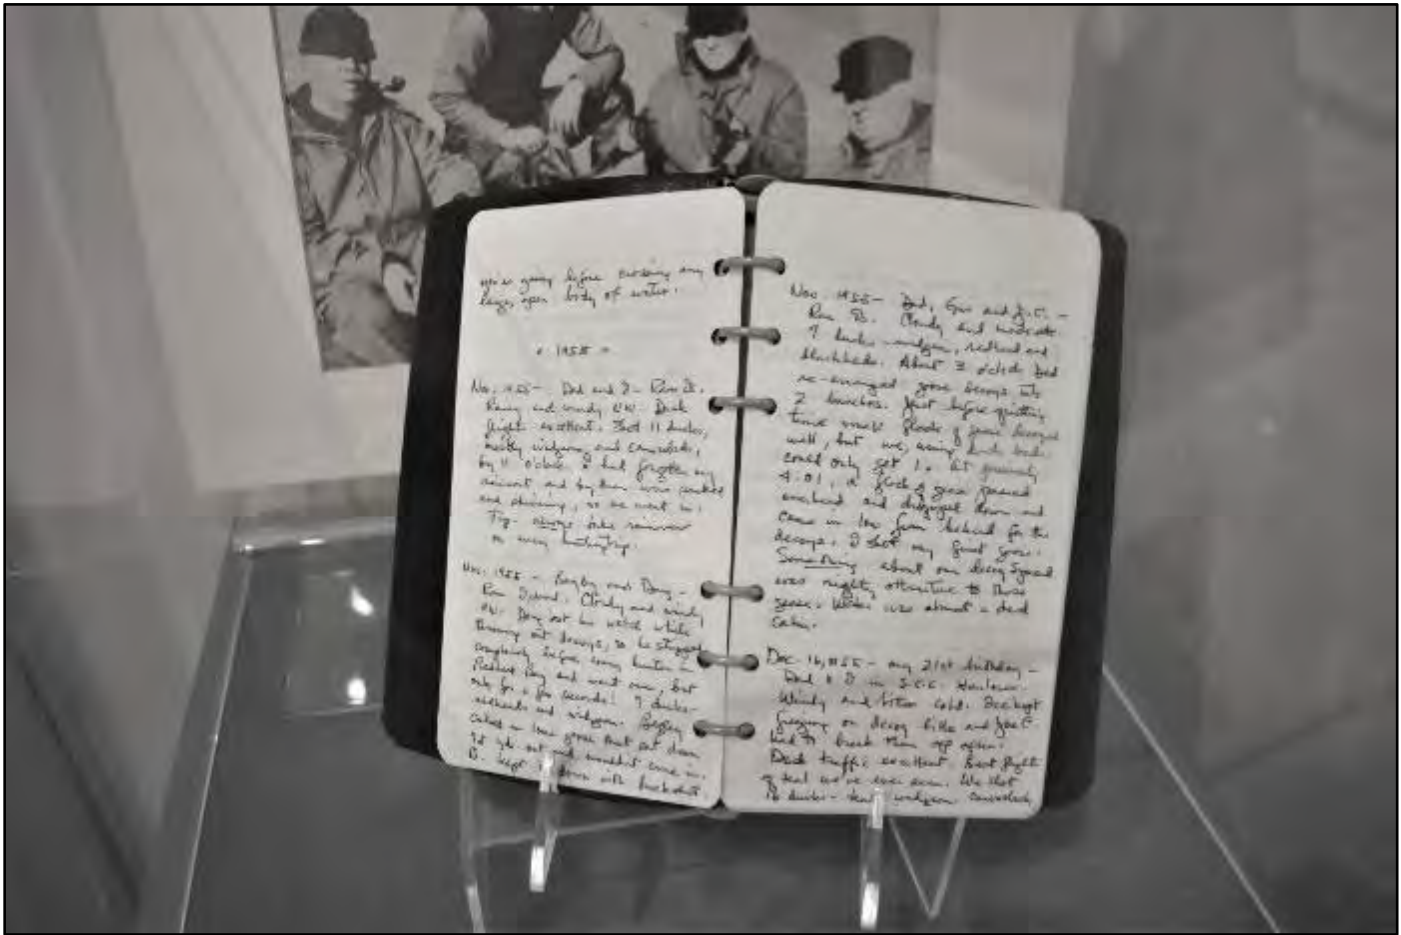 you're going before crossing any
large, open body of water.
- 1955 -
Nov. 1955 - Dad and I - Row
Rainy and windy NW. Duck
flight excellent. Shot 11 ducks,
mostly widgeon and canvasbacks,
by 11 o'clock. I had forgotten my
raincoat and by then was soaked
and shivering, so we went in.
Tip - always take rainwear
on every hunting trip.
Nov. 1955 - Bagby and Doug -
Row Sound. Cloudy and windy
NW. Doug lost his watch while
throwing out decoys, so he stripped
completely before every hunter in
Bay and went over, but
only for a few seconds! 9 ducks -
redheads and widgeon. Bagby
called in lone goose that sat down
yds. out and wouldn't come in.
B. kept down with buckshot.
Nov. 1955 - Dad, Gus and J.C. -
Row Cloudy and moderate.
9 ducks - widgeon, redhead and
blackheads. About 3 o'clock Dad
re-arranged goose decoys into
2 bunches. Just before quitting
time small flock of geese decoyed
well, but we, using duck loads
could only get 1. At precisely
4:01, a flock of geese passed
overhead and down and
came in low from behind for the
decoys. I shot my first goose.
Something about our decoy spread
was mighty attractive to those
geese. Water was almost a dead
calm.
Dec. 16, 1955 - my 21st birthday -
Dad & I in S.C.C.
Windy and bitter cold. Ice kept
freezing on decoy bills and Joe C.
had to break them up again.
Duck traffic excellent. Best flight
of teal we've ever seen. We shot
16 ducks - teal, widgeon, canvasback,